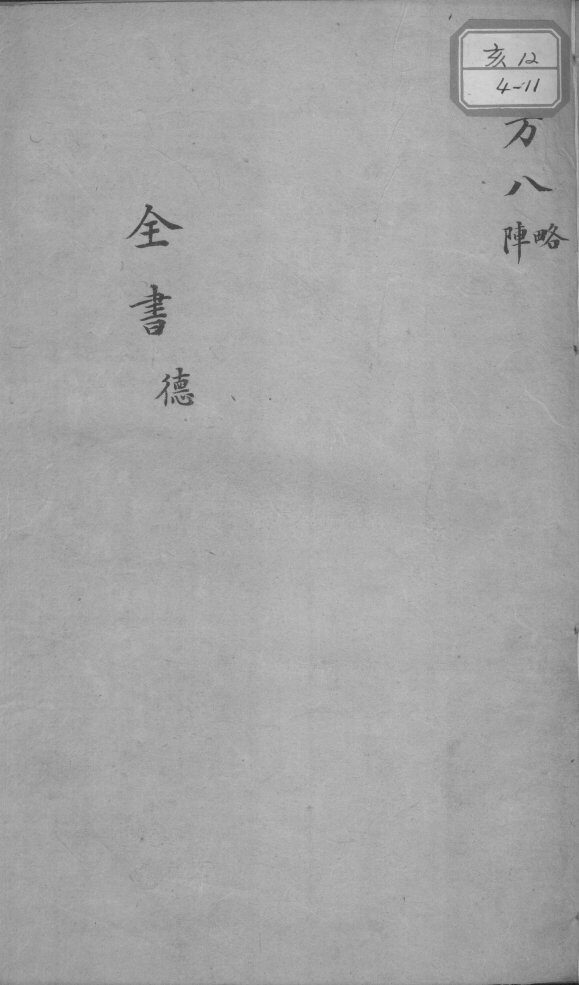 亥 12
4-11
方
八
略
陣
全書
德